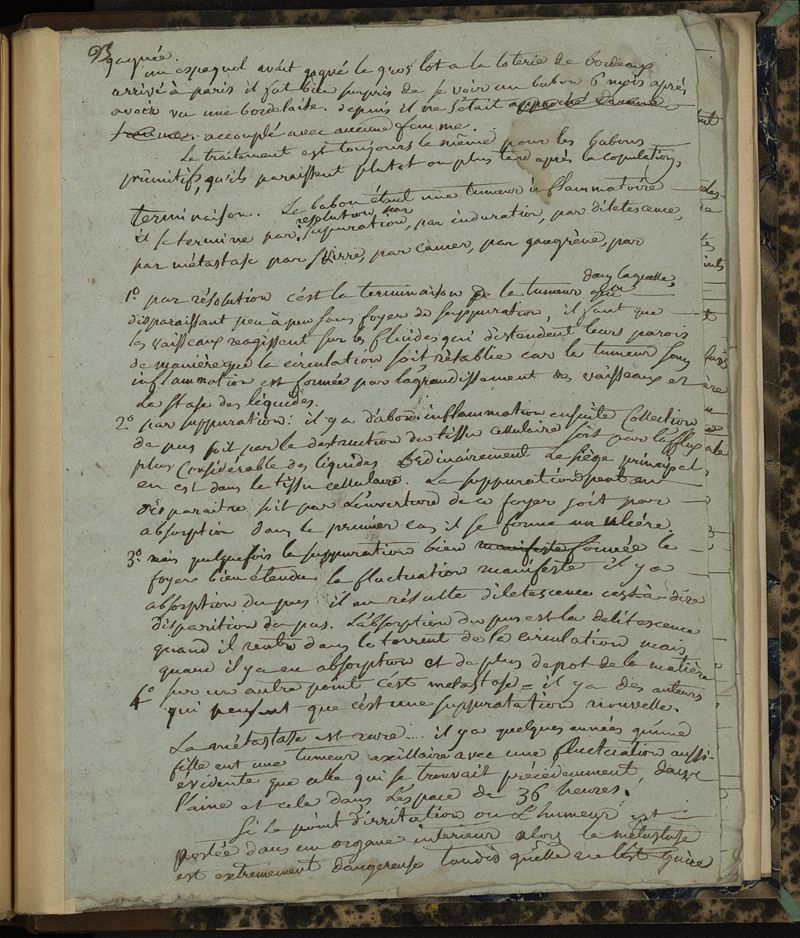 93
gagnée.
un espagnol avait gagné le gros lot a la loterie de bordeaux
arrivé à paris il fut bien surpris de se voir un bubon 6 mois après
avoir vu une bordelaise. depuis il ne s'était approché d'aucune
femme. accouplé avec aucune femme.
Le traitement est toujours le même pour les bubons
primitifs, qu'ils paraissent plutot ou plus tard après la copulation,
terminaison. Le bubon étant une tumeur inflammatoire
resolution, par
il se termine par suppuration, par induration, par délitescence,
par métastase par skirre, par cancer, par gangrène, par
dans laquelle,
1º par résolution c'est la terminaison de la tumeur qui
disparaissant peu à peu sans foyer de suppuration, il faut que
les vaisseaux reagissent sur les fluides qui distendent leurs parois
de manière que la circulation soit rétablie car la tumeur sous
inflammation est formée par l'agrandissement des vaisseaux et
la stase des liquides.
2º par suppuration: il y a d'abord inflammation ensuite Collection
de pus soit par la destruction du tissu cellulaire soit par l'afflux
plus Considerable des liquides Ordinairement le siège principal,
en est dans le tissu cellulaire. La suppuration peut en
disparaitre soit par l'ouverture de ce foyer soit par
absorption dans le premier cas il se forme un ulcère.
3º mais quelquefois la suppuration bien manifeste formée le
foyer bien étendu la fluctuation manifeste il y a
absorption du pus il en résulte délitescence c'est à dire
disparition du pus. L'absorption du pus est la délitescence
quand il rentre dans le torrent de la circulation mais
quand il y a eu absorption et de plus depot de la matière
4º sur un autre point c'est metastase = il y a des auteurs
qui pensent que c'est une suppuratation nouvelle.
La métastase est rare.... il y a quelques années qu'une
fille eut une tumeur axillaire avec une fluctuation aussi
évidente que celle qui se trouvait précédemment dans
l'aine et cela dans l'espace de 36 heures.
Si le point d'irritation ou L'humeur est
portée dans un organe intérieur alors la métastase
est extremement dangereuse tandis qu'elle ne l'est guère